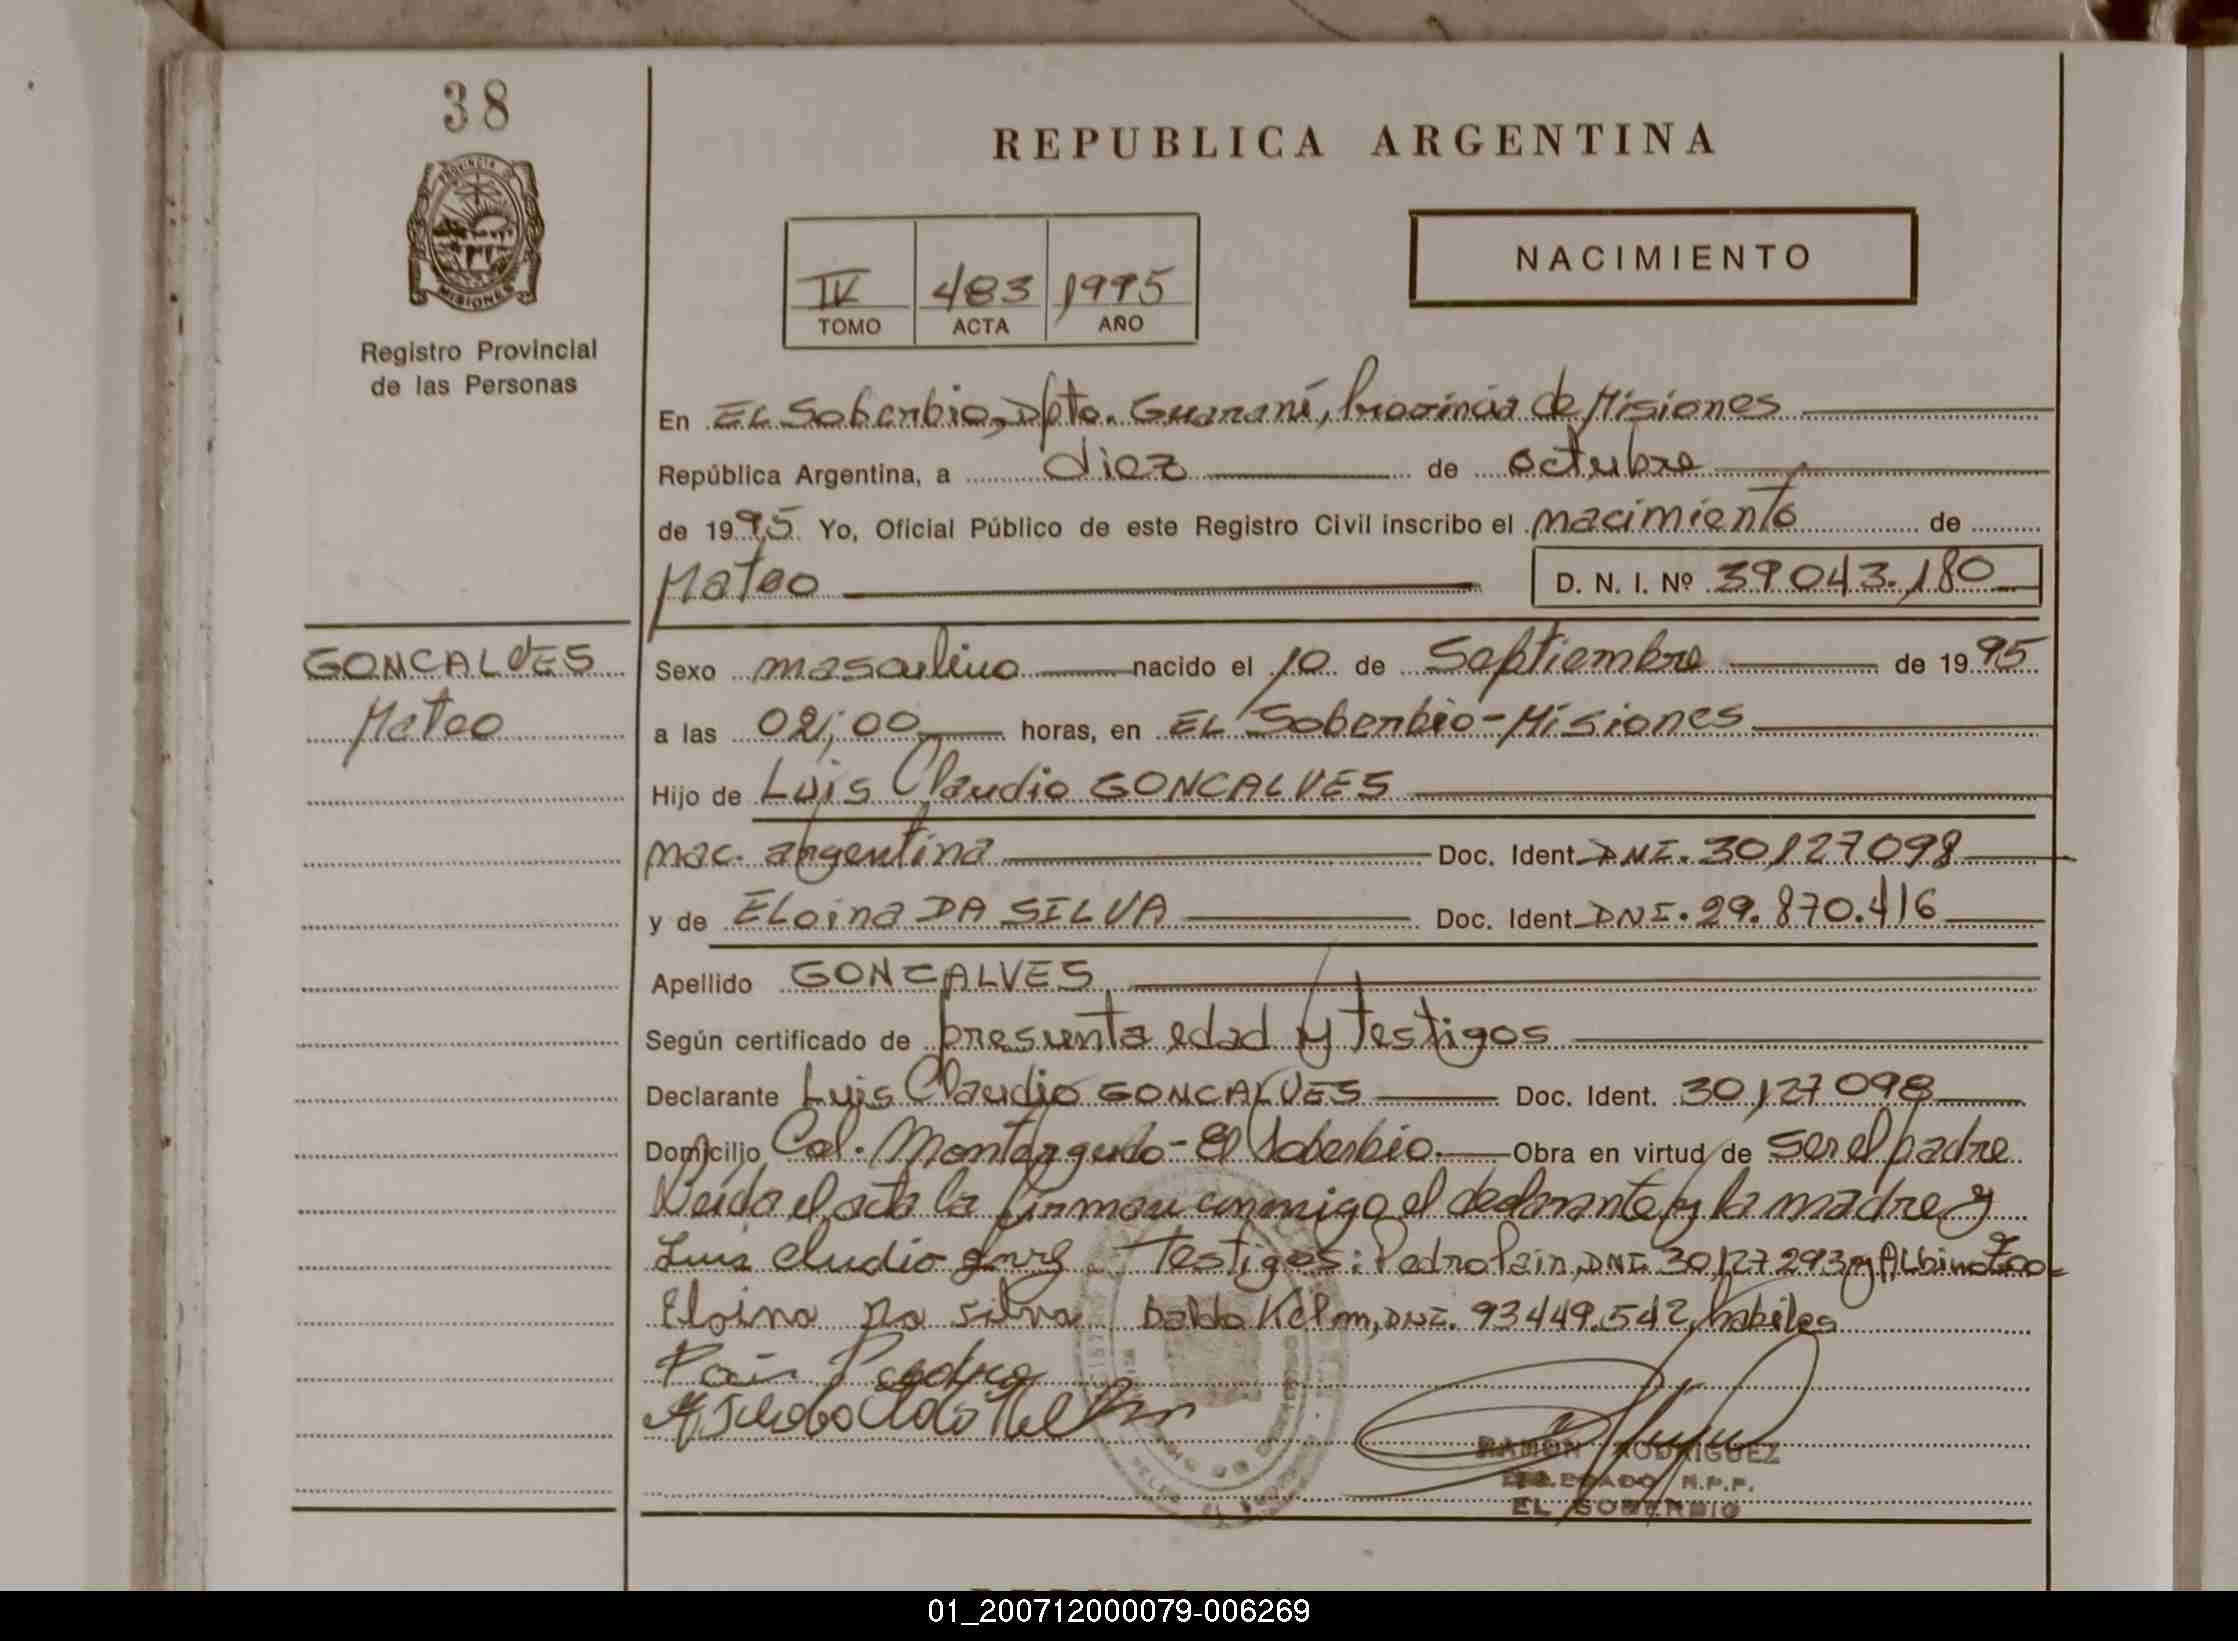 38
PROVINCIA DE
MISIONES
Registro Provincial
de las Personas
REPUBLICA ARGENTINA
IV 483 1995
TOMO ACTA AÑO
NACIMIENTO
En EL Soberbio, Dpto. Guaraní, Provincia de Misiones
República Argentina, a diez de octubre
de 1995 Yo, Oficial Público de este Registro Civil inscribo el nacimiento de
Mateo D. N. I. Nº 39.043.180
GONCALVES
Mateo
Sexo masculino nacido el 10 de Septiembre de 1995
a las 02,00 horas, en EL Soberbio-Misiones
Hijo de Luis Claudio GONCALVES
nac. argentina Doc. Ident. DNI. 30127098
y de ELoina DA SILVA Doc. Ident. DNI. 29.870.416
Apellido GONCALVES
Según certificado de presunta edad y testigos
Declarante Luis Claudio GONCALVES Doc. Ident. 30127098
Domicilio Col. Monteagudo - El Soberbio Obra en virtud de ser el padre
Leída el acta la firman conmigo el declarante y la madre y
Luis cludio Testigos: Pedro Pain, DNI. 30127293 y ALbino Teo-
Eloina Da Silva baldo Kelm, DNI. 93449.542, habiles
Pain Pedro
RAMON RODRIGUEZ
DELEGADO R.P.P.
EL SOBERBIO
01_200712000079-006269